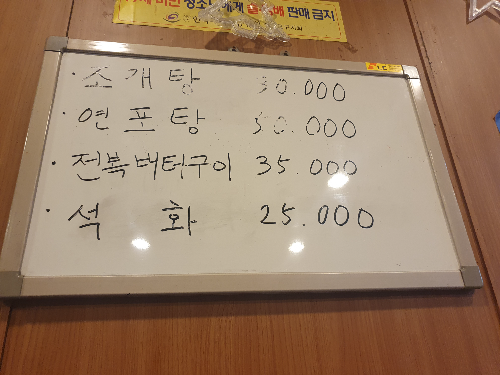 판매 금지
· 조개탕 30.000
· 연포탕 50.000
· 전복버터구이 35.000
· 석화 25.000